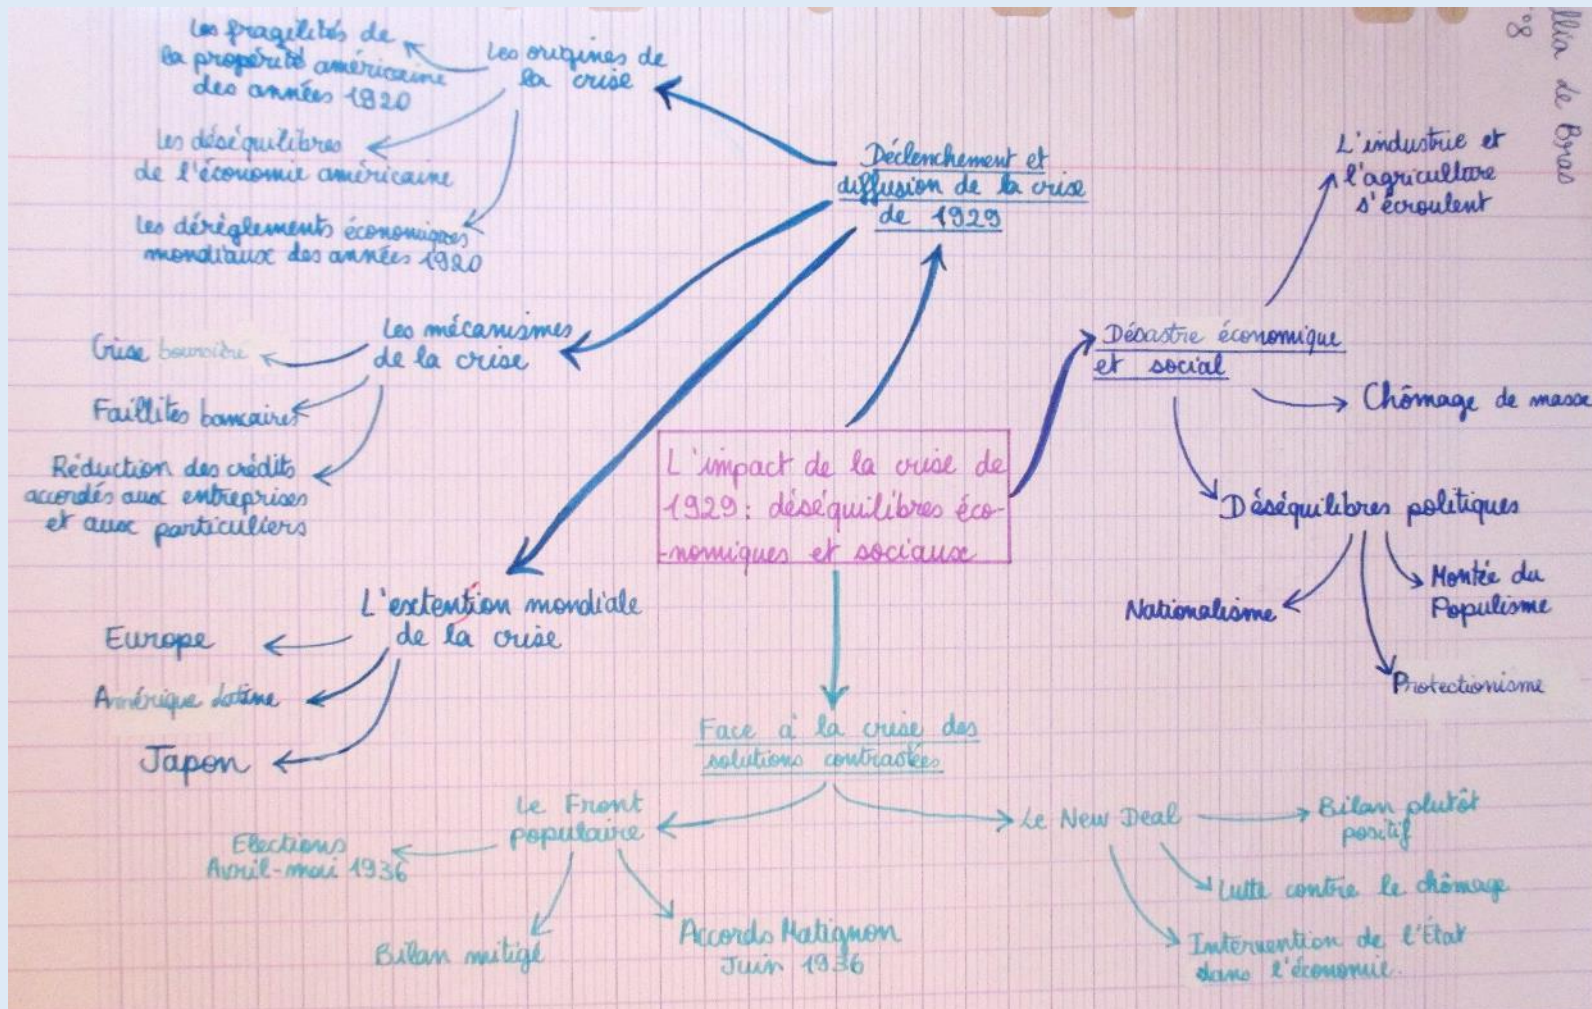 L'impact de la crise de
1929 : déséquilibres éco-
-nomiques et sociaux
Déclenchement et
diffusion de la crise
de 1929
Les origines de
la crise
Les fragilités de
la propérité américaine
des années 1920
Les déséquilibres
de l'économie américaine
Les dérèglements économiques
mondiaux des années 1920
Les mécanismes
de la crise
Crise boursière
Faillites bancaires
Réduction des crédits
accordés aux entreprises
et aux particuliers
L'extention mondiale
de la crise
Europe
Amérique latine
Japon
Désastre économique
et social
L'industrie et
l'agriculture
s'écroulent
Chômage de masse
Déséquilibres politiques
Nationalisme
Montée du
Populisme
Protectionisme
Face à la crise des
solutions contrastées
Le Front
populaire
Elections
Avril-mai 1936
Bilan mitigé
Accords Matignon
Juin 1936
Le New Deal
Bilan plutôt
positif
Lutte contre le chômage
Intervention de l'État
dans l'économie.
de Bras